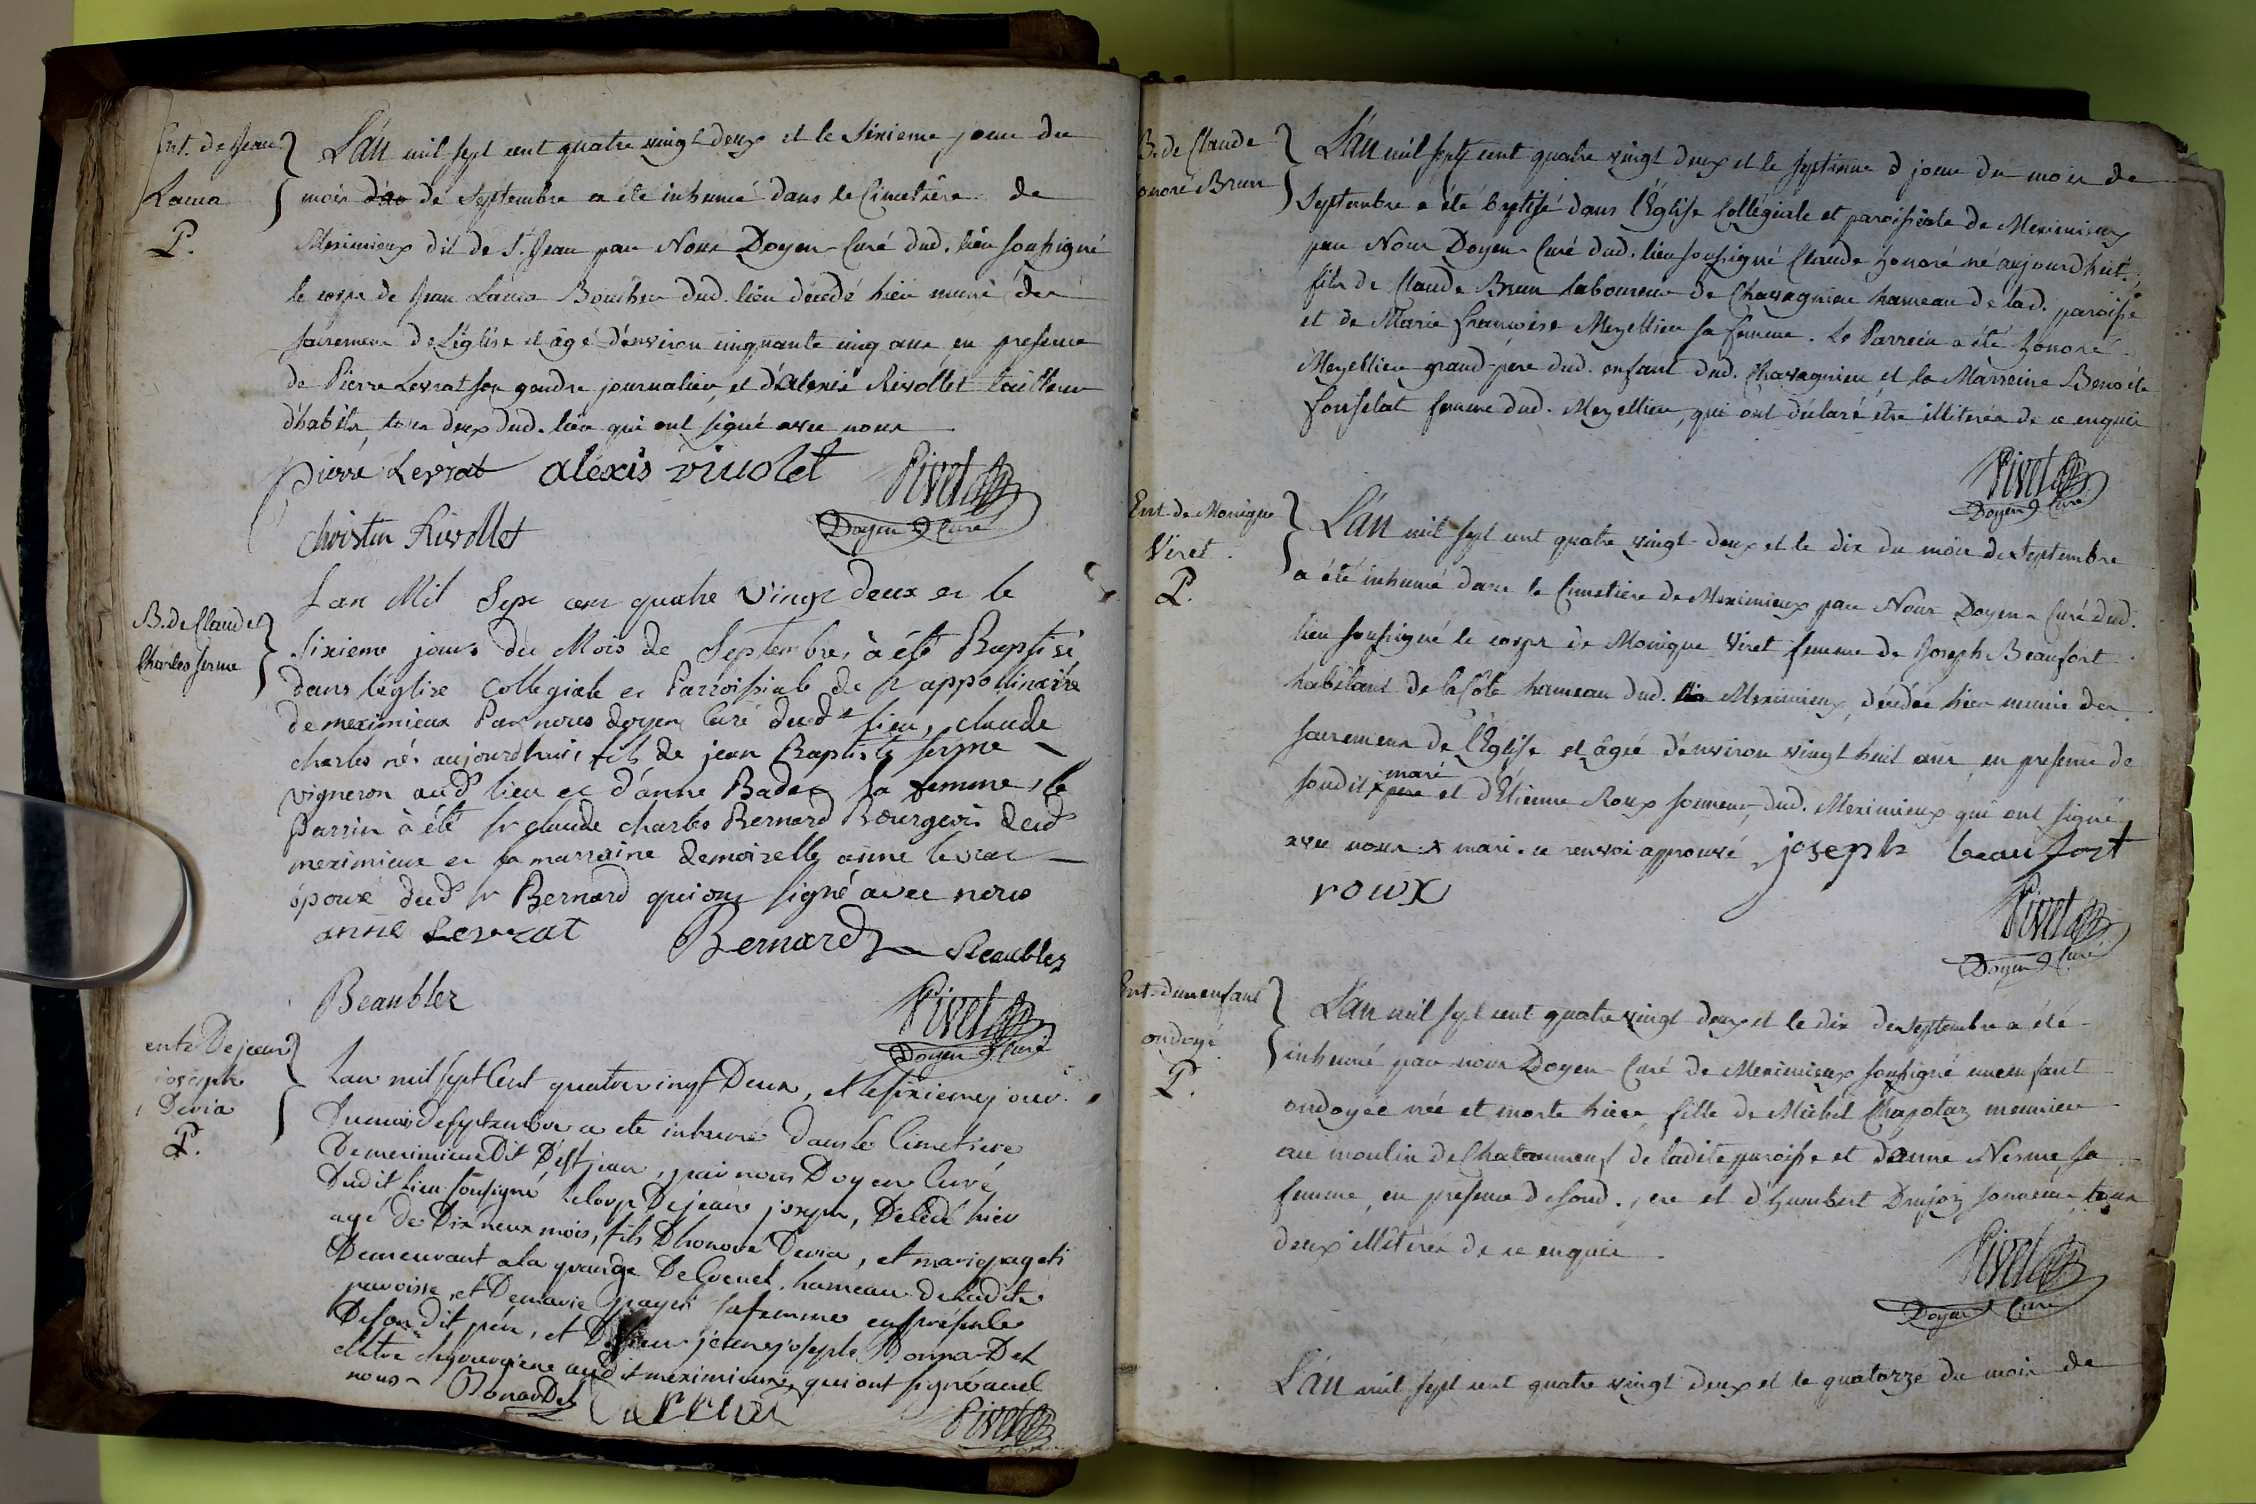 Ent. de Jean
Lama
P.
L'an mil sept cent quatre vingt deux et le sixieme jour du
mois de Septembre a été inhumé dans le Cimetière de
Meximieux dit de St. Jean par Nous Doyen-Curé dud. lieu soussigné
le corps de Jean Lama dud. lieu décédé hier muni des
sacremens de L'église et âgé d'environ cinquante cinq ans, en presence
de Pierre Levrat son gendre journalier, et d'Alexis Rivollet tailleur
d'habits, tous deux dud. lieu qui ont signé avec nous
pierre Levrat alexis rivolet Pivet
Doyen Curé
christin Rivollet
B. de Claude
Charles ferme
Lan Mil Sept cent quatre Vingt deux et le
sixieme jour du Mois de Septembre, à été Baptisé
dans l'église Collegiale et Parroissiale de st appollinaire
de meximieux Par nous doyen Curé dudt lieu, claude
charles né aujourdhui, fils de jean Baptiste ferme
vigneron aud lieu et d'anne Badet sa femme, le
parrin à été sr claude charles Bernard Bourgeois dud
meximieux et la marraine demoizelle anne levrat
épouse dud sr Bernard qui ont signé avec nous
anne Levrat Bernard Beaublez
Beaublez
Pivet
Doyen Curé
ent. De jean
joseph
Devia
P.
Lan mil sept Cent quatre vingt Deux, et le sixieme jour
Du mois de septembre a ete inhumé dans le Cimetiere
De meximieux Dit De st jean, par nous Doyen Curé
Dudit lieu soussigné le Corps De jean joseph, Décédé hier
agé de Dix neuf mois, fils D'honoré Devia, et
Demeurant a la grange De hameau de ladite
paroisse, et De marie sa femme en présence
De son dit père, et De jean joseph Bonardet
audit meximieux, qui ont signé avec
nous Bonardet
Pivet
B. de Claude
honoré Brun
L'an mil sept cent quatre vingt deux et le septieme d jour du mois de
Septembre a été baptisé dans l'Église Collégiale et paroissiale de Meximieux
par Nous Doyen-Curé dud. lieu soussigné Claude honoré né aujourdhui,
fils de Claude Brun laboureur de Chavagnieu hameau de lad. paroisse
et de Marie francoise Mezellieu sa femme. Le Parrein a été honoré
Mezellieu grand-père dud. enfant dud. Chavagnieu et la Marreine Benoite
femme dud. Mezellieu, qui ont déclaré être illiterés de ce enquis
Pivet
Doyen Curé
Ent. de Monique
Viret.
P.
L'an mil sept cent quatre vingt deux et le dix du mois de Septembre
a été inhumé dans le Cimetiere de Meximieux par Nous Doyen-Curé dud.
lieu soussigné le corps de Monique Viret femme de Joseph Beaufort
habitant de la Côte hameau dud. Meximieux, décédée hier munie des
sacremens de l'Église et âgée d'environ vingt huit ans, en presence de
sondit x père mari et d'Étienne Roux sonneur dud. Meximieux qui ont signé
avec nous. x mari. ce renvoi approuvé joseph beaufort
roux
Pivet
Doyen Curé
Ent. d'un enfant
ondoyé
P.
L'an mil sept cent quatre vingt deux et le dix de Septembre a été
inhumé par nous Doyen-Curé de Meximieux soussigné un enfant
ondoyée née et morte hier, fille de Michel Chapotaz meunier
au moulin de Chataunneuf de ladite paroisse et d'Anne Nesme sa
femme, en presence de sond. père et d'humbert Drujoz sonneur, tous
deux illiterés de ce enquis.
Pivet
Doyen Curé
L'an mil sept cent quatre vingt deux et le quatorze du mois de